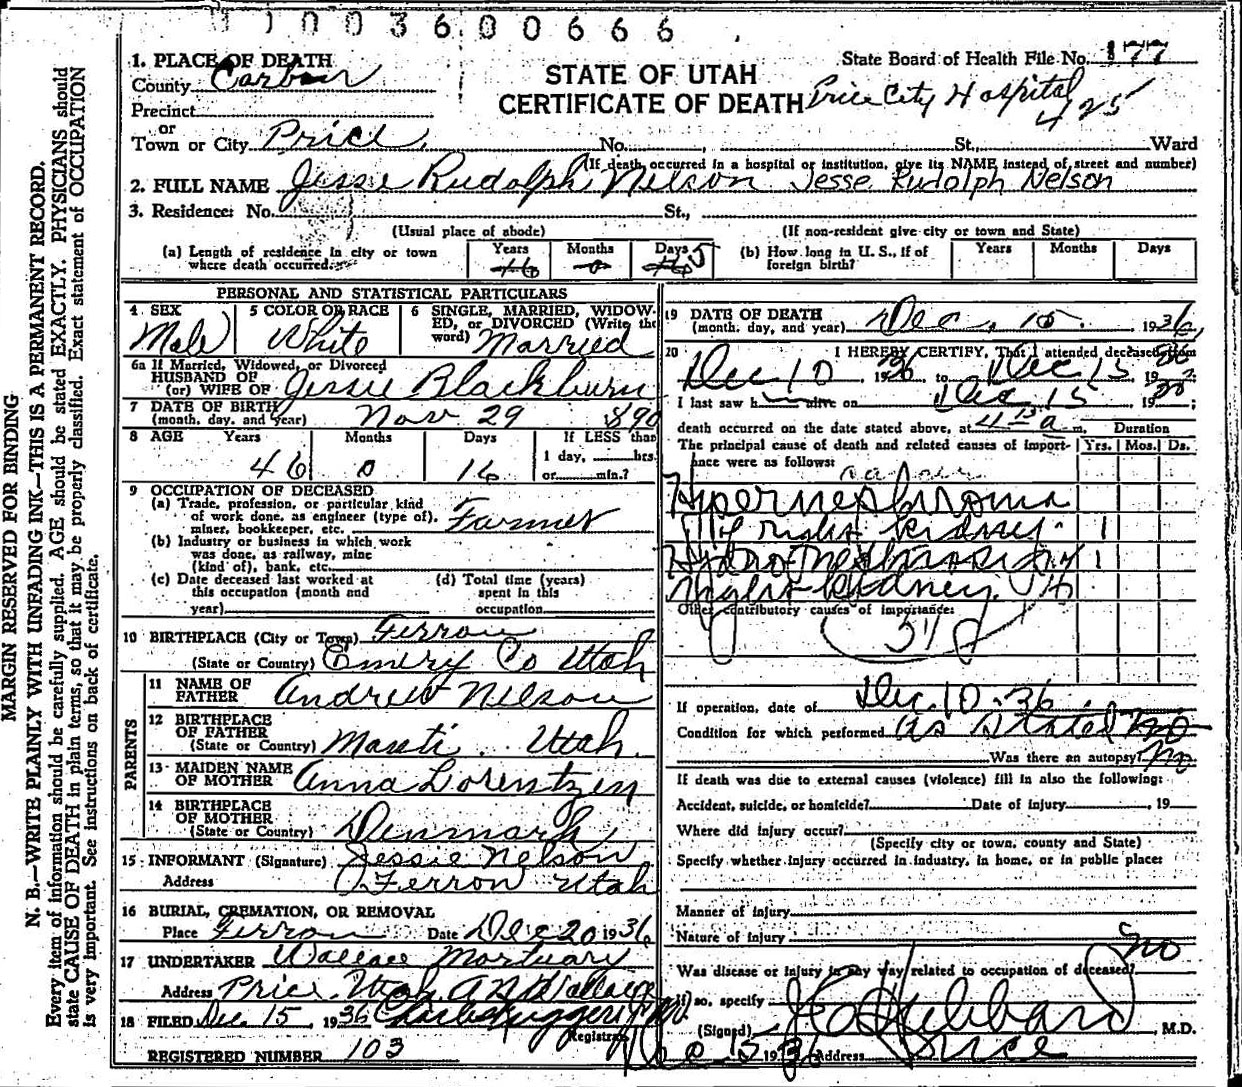 11003600666
1. PLACE OF DEATH
County Carbon
State Board of Health File No. 177
STATE OF UTAH
CERTIFICATE OF DEATH
Price City Hospital
425
Precinct
or
Town or City Price. No. St., Ward
(If death occurred in a hospital or institution, give its NAME instead of street and number)
2. FULL NAME Jessie Rudolph Nelson Jesse Rudolph Nelson
3. Residence: No. St.,
(Usual place of abode) (If non-resident give city or town and State)
(a) Length of residence in city or town where death occurred. Years 46 Months 0 Days 16 5
(b) How long in U. S., if of foreign birth? Years Months Days
PERSONAL AND STATISTICAL PARTICULARS
4 SEX Male
5 COLOR OR RACE White
6 SINGLE, MARRIED, WIDOWED, or DIVORCED (Write the word) Married
6a If Married, Widowed, or Divorced
HUSBAND OF
(or) WIFE OF Jessie Blackburn
7 DATE OF BIRTH
(month, day, and year) Nov 29 1890
8 AGE Years 46 Months 0 Days 16
If LESS than
1 day, hrs.
or min.?
9 OCCUPATION OF DECEASED
(a) Trade, profession, or particular kind
of work done, as engineer (type of),
miner, bookkeeper, etc. Farmer
(b) Industry or business in which work
was done, as railway, mine
(kind of), bank, etc.
(c) Date deceased last worked at
this occupation (month and
year)
(d) Total time (years)
spent in this
occupation
10 BIRTHPLACE (City or Town) Ferron
(State or Country) Emery Co Utah
PARENTS
11 NAME OF
FATHER Andrew Nelson
12 BIRTHPLACE
OF FATHER
(State or Country) Manti Utah
13 MAIDEN NAME
OF MOTHER Anna Lorentzen
14 BIRTHPLACE
OF MOTHER
(State or Country) Denmark
15 INFORMANT (Signature) Jessie Nelson
Address Ferron Utah
16 BURIAL, CREMATION, OR REMOVAL
Place Ferron Date Dec 20 1936
17 UNDERTAKER Wallace Mortuary
Address Price, Utah A N Wallace
18 FILED Dec. 15, 1936 Charles Ruggeri
Registrar
REGISTERED NUMBER 103
19 DATE OF DEATH
(month, day, and year) Dec. 15. 1936
20 I HEREBY CERTIFY, That I attended deceased from
Dec 10 1936 to Dec 15 1936
I last saw h alive on Dec 15 19
death occurred on the date stated above, at 4 15 a m. Duration
The principal cause of death and related causes of importance were as follows: Yrs. Mos. Ds.
cancer
Hypernephroma
of right kidney. 1
Hydronephrosis 1
right kidney
Other contributory causes of importance:
If operation, date of Dec. 10-36
Condition for which performed as stated no
Was there an autopsy? no
If death was due to external causes (violence) fill in also the following:
Accident, suicide, or homicide? Date of injury , 19
Where did injury occur?
(Specify city or town, county and State)
Specify whether injury occurred in industry, in home, or in public place:
Manner of injury
Nature of injury
Was disease or injury in any way related to occupation of deceased? no
If so, specify
(Signed) Hubbard, M.D.
Dec 15 1936 Address Price
MARGIN RESERVED FOR BINDING
N. B.—WRITE PLAINLY WITH UNFADING INK—THIS IS A PERMANENT RECORD.
Every item of information should be carefully supplied. AGE should be stated EXACTLY. PHYSICIANS should
state CAUSE OF DEATH in plain terms, so that it may be properly classified. Exact statement of OCCUPATION
is very important. See instructions on back of certificate.